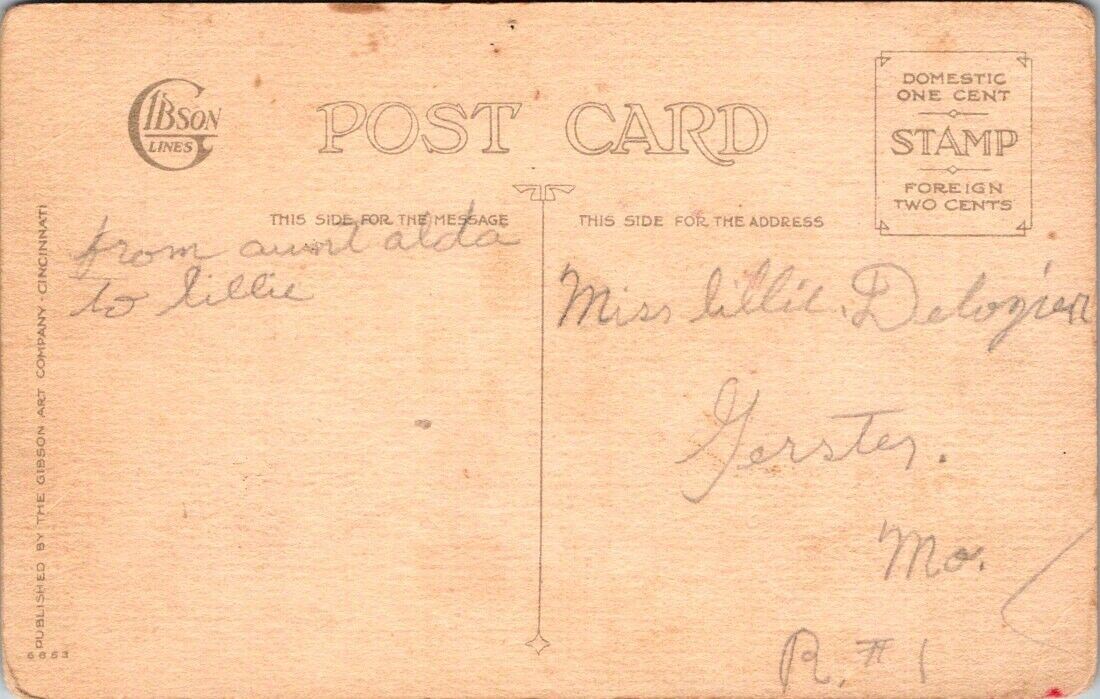 GIBSON
LINES
POST CARD
DOMESTIC
ONE CENT
STAMP
FOREIGN
TWO CENTS
THIS SIDE FOR THE MESSAGE
THIS SIDE FOR THE ADDRESS
from aunt alda
to lillie
Miss lillie. Delozier
Gerster.
Mo.
R. # 1
PUBLISHED BY THE GIBSON ART COMPANY - CINCINNATI
6663